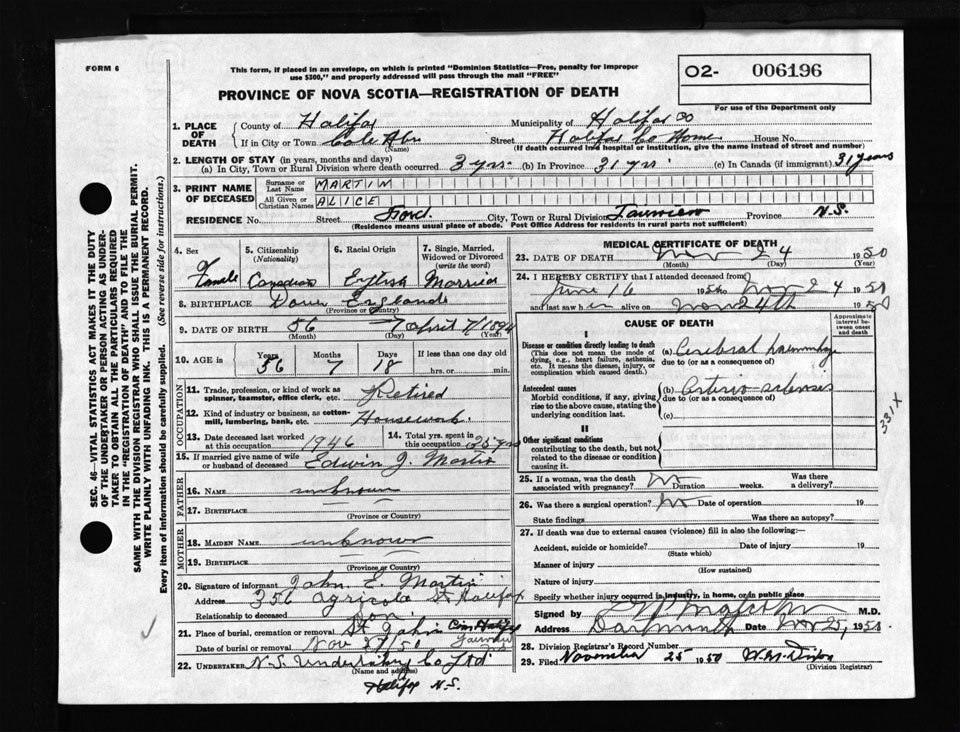 FORM 6
This form, if placed in an envelope, on which is printed "Dominion Statistics—Free, penalty for improper
use $300," and properly addressed will pass through the mail "FREE"
O2- 006196
For use of the Department only
PROVINCE OF NOVA SCOTIA—REGISTRATION OF DEATH
1. PLACE OF DEATH
County of Halifax Municipality of Halifax Co
If in City or Town Cole Hbr (Name) Street Halifax Co Home House No.
(If death occurred in a hospital or institution, give the name instead of street and number)
2. LENGTH OF STAY (in years, months and days)
(a) In City, Town or Rural Division where death occurred 3 yrs. (b) In Province 31 yrs (c) In Canada (if immigrant) 31 years
3. PRINT NAME OF DECEASED
Surname or Last Name MARTIN
All Given or Christian Names ALICE
RESIDENCE No. Street Ford. City, Town or Rural Division Fairview Province N.S.
(Residence means usual place of abode. Post Office Address for residents in rural parts not sufficient)
4. Sex Female
5. Citizenship (Nationality) Canadian
6. Racial Origin English
7. Single, Married, Widowed or Divorced (write the word) Married
8. BIRTHPLACE Dover England
(Province or Country)
9. DATE OF BIRTH 56 7 April 7/1894
(Month) (Day) (Year)
10. AGE in Years 56 Months 7 Days 18 If less than one day old hrs. or min.
OCCUPATION
11. Trade, profession, or kind of work as spinner, teamster, office clerk, etc. Retired
12. Kind of industry or business, as cotton-mill, lumbering, bank, etc. Housework.
13. Date deceased last worked at this occupation 1946
14. Total yrs. spent in this occupation 25 yrs
15. If married give name of wife or husband of deceased Edwin J. Martin
FATHER
16. NAME unknown
17. BIRTHPLACE
(Province or Country)
MOTHER
18. MAIDEN NAME unknown
19. BIRTHPLACE
(Province or Country)
20. Signature of informant John E. Martin
Address 356 Agricola St Halifax
Relationship to deceased
21. Place of burial, cremation or removal St John Cem Halifax
Date of burial or removal Nov 27/50 Fairview
22. UNDERTAKER N.S. Undertaking Co Ltd
(Name and address)
Halifax N.S.
MEDICAL CERTIFICATE OF DEATH
23. DATE OF DEATH Nov 24 1950
(Month) (Day) (Year)
24. I HEREBY CERTIFY that I attended deceased from
June 16 1950 to Nov 24 1950
and last saw h er alive on Nov 24th 1950
CAUSE OF DEATH
Approximate interval between onset and death
I
Disease or condition directly leading to death
(This does not mean the mode of dying, e.g., heart failure, asthenia, etc. It means the disease, injury, or complication which caused death.)
(a) Cerebral haemorrhage
due to (or as a consequence of)
Antecedent causes
Morbid conditions, if any, giving rise to the above cause, stating the underlying condition last.
(b) Arterio-sclerosis
due to (or as a consequence of)
(c)
II
Other significant conditions
contributing to the death, but not related to the disease or condition causing it.
331X
25. If a woman, was the death associated with pregnancy? No Duration weeks. Was there a delivery?
26. Was there a surgical operation? No Date of operation 19
State findings Was there an autopsy?
27. If death was due to external causes (violence) fill in also the following:—
Accident, suicide or homicide? Date of injury 19
(State which)
Manner of injury
(How sustained)
Nature of injury
Specify whether injury occurred in industry, in home, or in public place
Signed by M.D.
Address Dartmouth Date Nov 25, 1950
28. Division Registrar's Record Number
29. Filed November 25 1950 W. M. Dixon
(Division Registrar)
SEC. 46—VITAL STATISTICS ACT MAKES IT THE DUTY
OF THE UNDERTAKER OR PERSON ACTING AS UNDER-
TAKER TO OBTAIN ALL THE PARTICULARS REQUIRED
IN THE "REGISTRATION OF DEATH" AND TO FILE THE
SAME WITH THE DIVISION REGISTRAR WHO SHALL ISSUE THE BURIAL PERMIT.
WRITE PLAINLY WITH UNFADING INK. THIS IS A PERMANENT RECORD.
Every item of information should be carefully supplied. (See reverse side for instructions.)